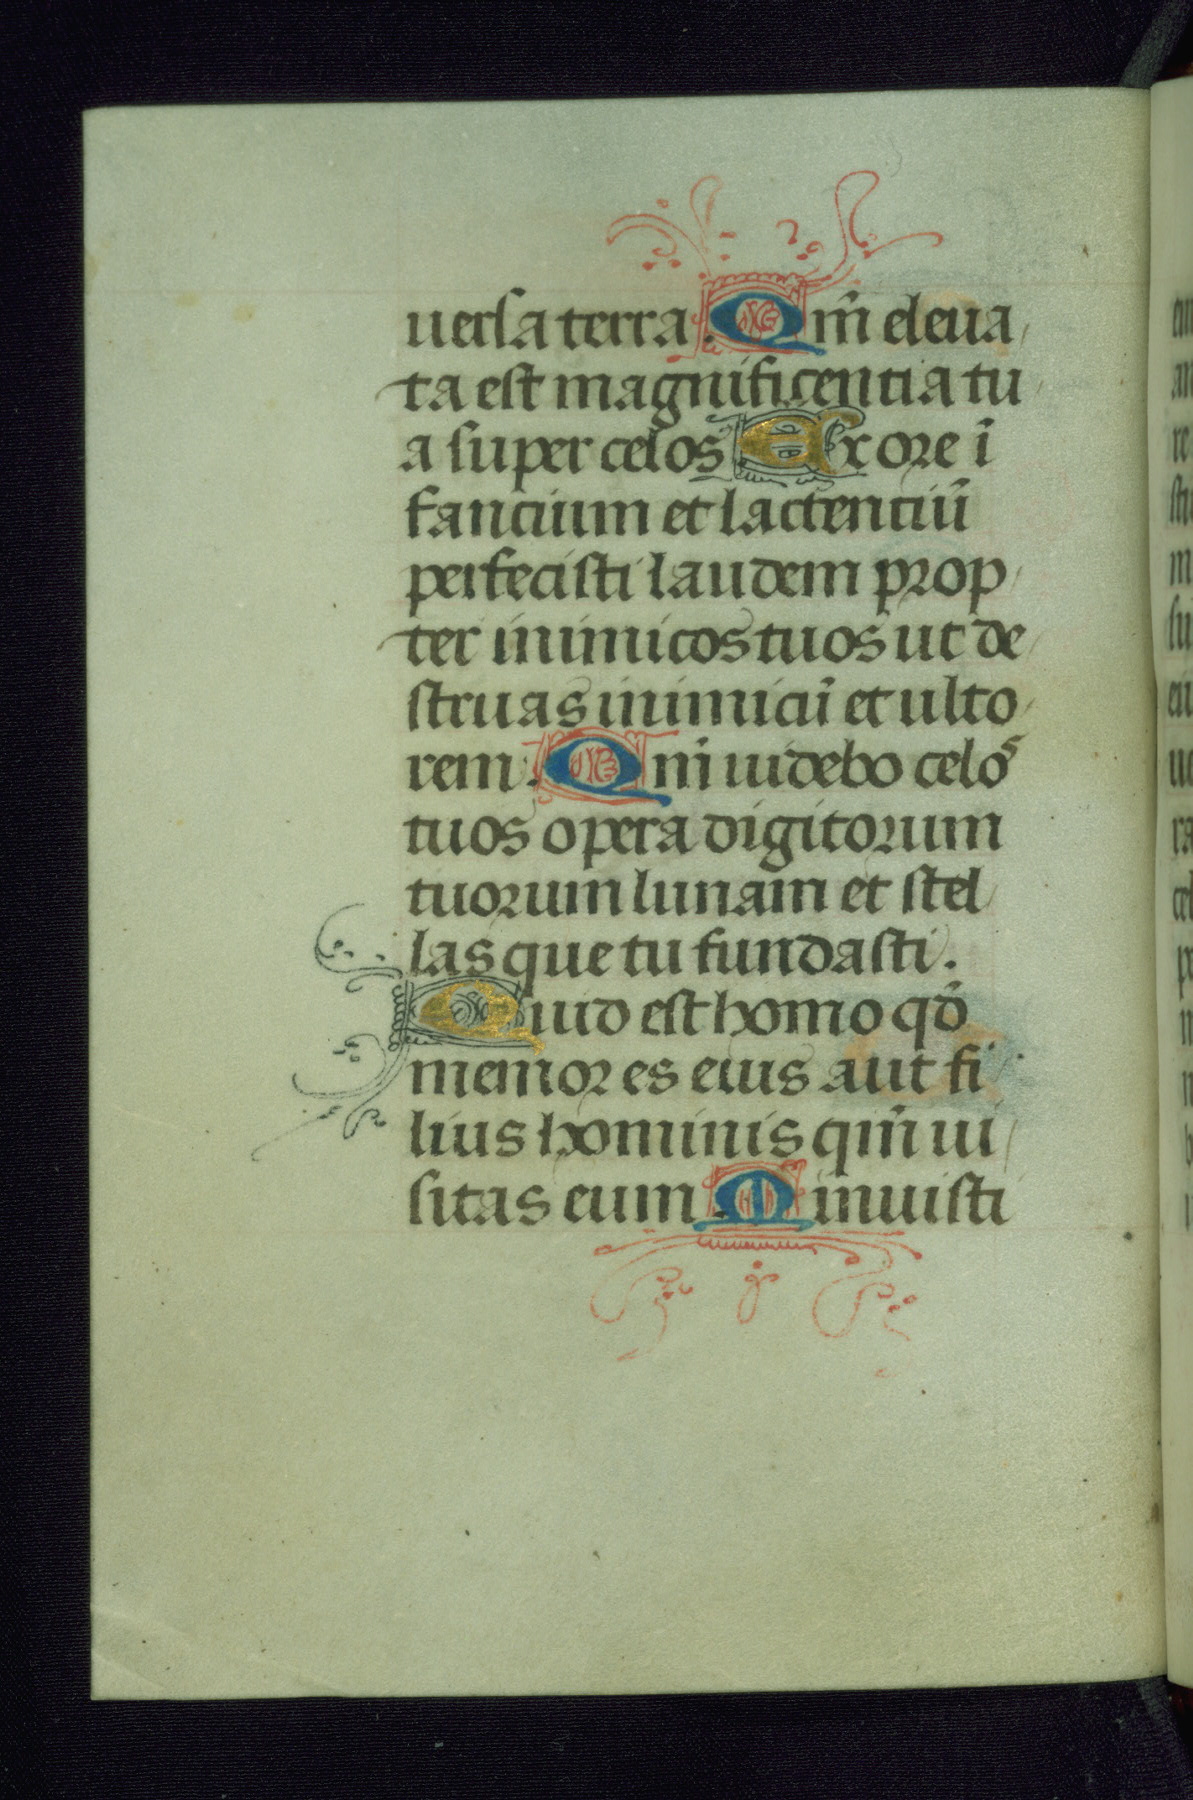 uersa terra. Qm̄ eleua
ta est magnificentia tu
a super celos Ex ore ī
fancium et lactenciū
perfecisti laudem prop
ter inimicos tuos ut de
struas inimicū et ulto
rem. Qm̄ uidebo celos
tuos opera digitorum
tuorum lunam et stel
las que tu fundasti.
Quid est homo qđ
memor es eius aut fi
lius hominis qm̄ ui
sitas eum. Minuisti